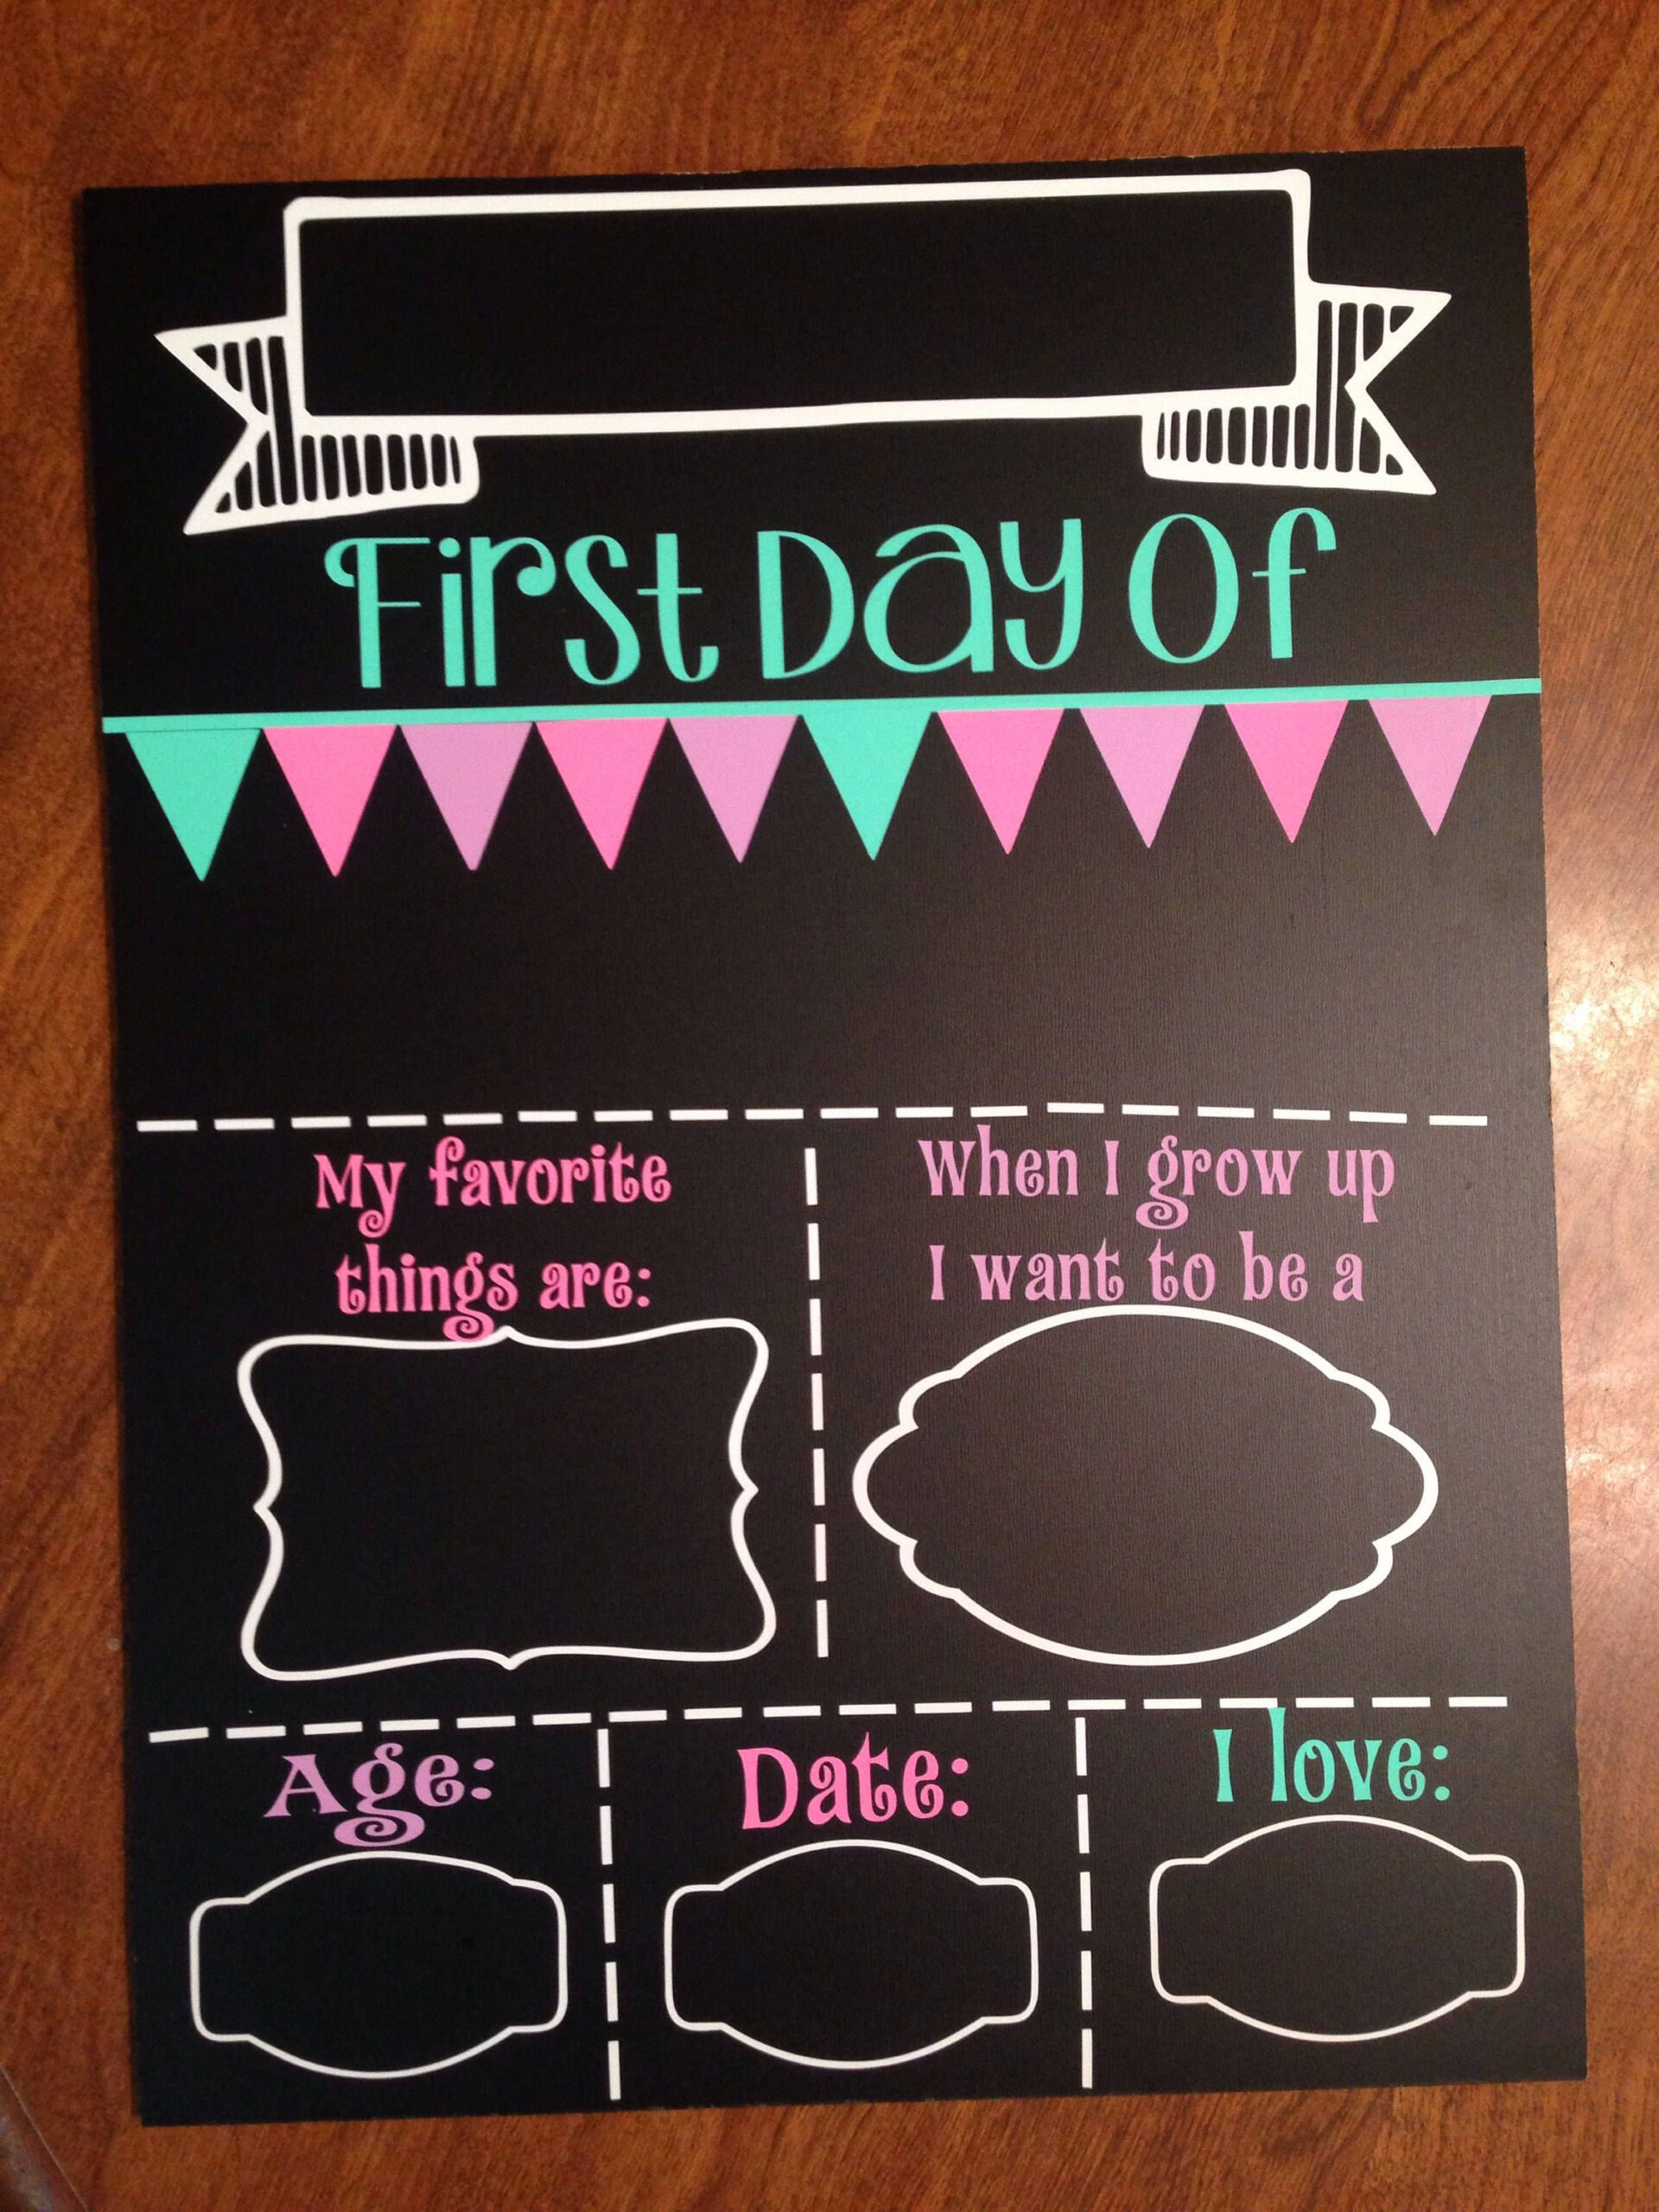 First Day Of
My favorite
things are:
When I grow up
I want to be a
Age:
Date:
I love: